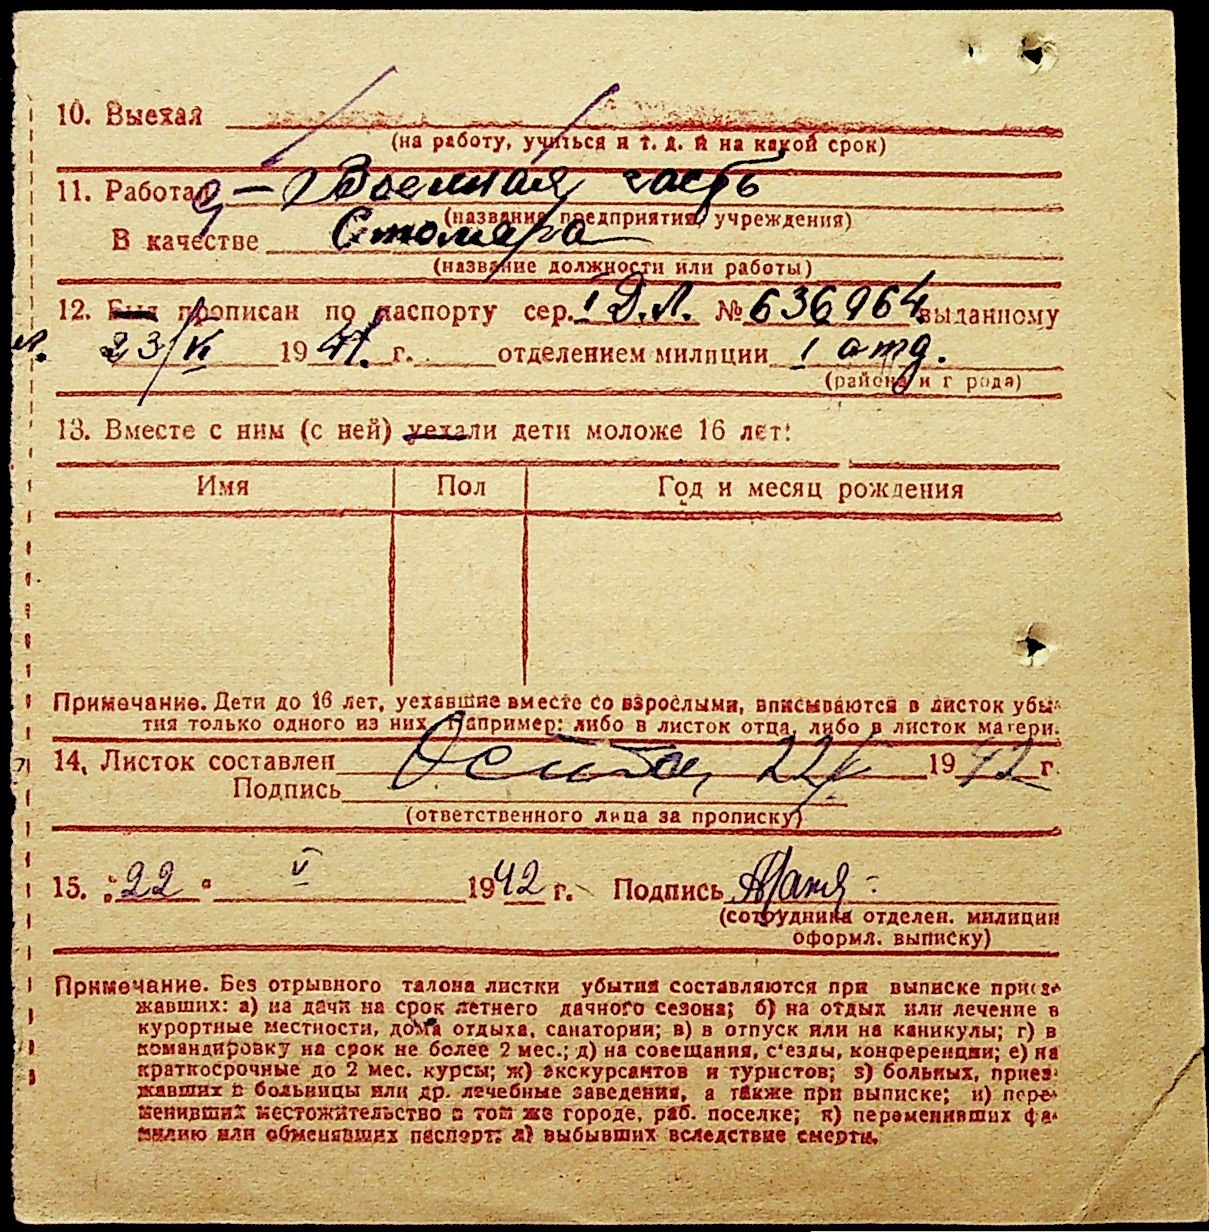 10. Выехал
(на работу, учиться и т. д. и на какой срок)
11. Работал — Военная часть
(название предприятия, учреждения)
В качестве Столяра
(название должности или работы)
12. Был прописан по паспорту сер. I Д.Л. № 636964 выданному
23/VI 1941 г. отделением милиции 1 отд.
(района и города)
13. Вместе с ним (с ней) уехали дети моложе 16 лет:
Имя Пол Год и месяц рождения
Примечание. Дети до 16 лет, уехавшие вместе со взрослыми, вписываются в листок убы-
тия только одного из них. Например: либо в листок отца, либо в листок матери.
14. Листок составлен 22/V 1942 г.
Подпись
(ответственного лица за прописку)
15. "22" V 1942 г. Подпись
(сотрудника отделен. милиции
оформл. выписку)
Примечание. Без отрывного талона листки убытия составляются при выписке приез-
жавших: а) на дачи на срок летнего дачного сезона; б) на отдых или лечение в
курортные местности, дома отдыха, санатории; в) в отпуск или на каникулы; г) в
командировку на срок не более 2 мес.; д) на совещания, с'езды, конференции; е) на
краткосрочные до 2 мес. курсы; ж) экскурсантов и туристов; з) больных, приез-
жавших в больницы или др. лечебные заведения, а также при выписке; и) пере-
менивших местожительство в том же городе, раб. поселке; к) переменивших фа-
милию или обменявших паспорт; л) выбывших вследствие смерти.